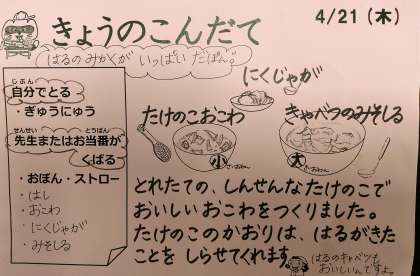 きょうのこんだて
4/21(木)
はるのみかくが いっぱい だぽん。
にくじゃが
たけのこおこわ
キャベツのみそしる
じぶん
自分でとる
・ぎゅうにゅう
せんせい とうばん
先生またはお当番が
くばる
・おぼん・ストロー
・はし
・おこわ
・にくじゃが
・みそしる
小
大
とれたての、しんせんなたけのこで
おいしいおこわをつくりました。
たけのこのかおりは、はるがきた
ことを しらせてくれます。
はるのキャベツも
おいしいんですよ。